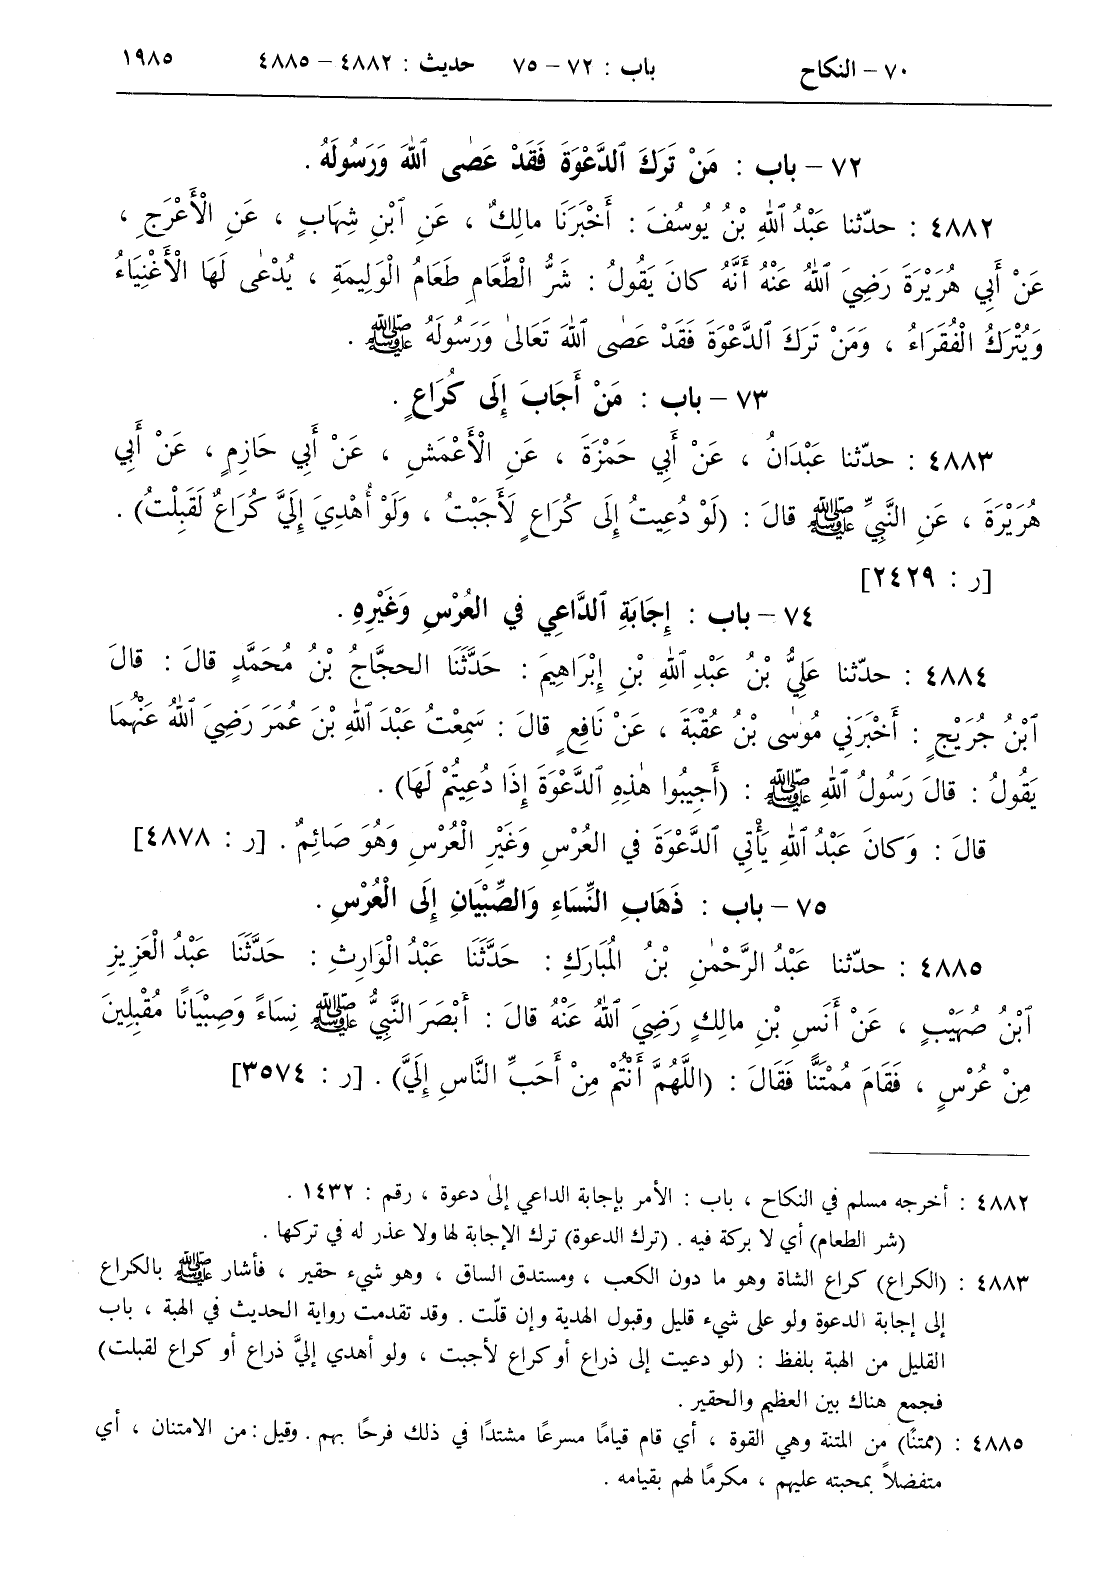 ٧٠ – النكاح باب : ٧٢ – ٧٥ حديث : ٤٨٨٢ – ٤٨٨٥ ١٩٨٥
٧٢ – باب : مَنْ تَرَكَ ٱلدَّعْوَةَ فَقَدْ عَصَى ٱللهَ وَرَسُولَهُ .
٤٨٨٢ : حدّثنا عَبْدُ ٱللهِ بْنُ يُوسُفَ : أَخْبَرَنَا مالِكٌ ، عَنِ ٱبْنِ شِهَابٍ ، عَنِ الْأَعْرَجِ ،
عَنْ أَبِي هُرَيْرَةَ رَضِيَ ٱللهُ عَنْهُ أَنَّهُ كانَ يَقُولُ : شَرُّ الطَّعَامِ طَعَامُ الْوَلِيمَةِ ، يُدْعٰى لَهَا الْأَغْنِيَاءُ
وَيُتْرَكُ الْفُقَرَاءُ ، وَمَنْ تَرَكَ ٱلدَّعْوَةَ فَقَدْ عَصٰى ٱللهَ تَعَالىٰ وَرَسُولَهُ ﷺ .
٧٣ – باب : مَنْ أَجَابَ إِلَى كُرَاعٍ .
٤٨٨٣ : حدّثنا عَبْدَانُ ، عَنْ أَبِي حَمْزَةَ ، عَنِ الْأَعْمَشِ ، عَنْ أَبِي حَازِمٍ ، عَنْ أَبِي
هُرَيْرَةَ ، عَنِ النَّبِيِّ ﷺ قالَ : (لَوْ دُعِيتُ إِلَى كُرَاعٍ لَأَجَبْتُ ، وَلَوْ أُهْدِيَ إِلَيَّ كُرَاعٌ لَقَبِلْتُ) .
[ر : ٢٤٢٩]
٧٤ – باب : إِجَابَةِ ٱلدَّاعِي في العُرْسِ وَغَيْرِهِ .
٤٨٨٤ : حدّثنا عَلِيُّ بْنُ عَبْدِ ٱللهِ بْنِ إِبْرَاهِيمَ : حَدَّثَنَا الحجَّاجُ بْنُ مُحَمَّدٍ قالَ : قالَ
ٱبْنُ جُرَيْجٍ : أَخْبَرَنِي مُوسٰى بْنُ عُقْبَةَ ، عَنْ نَافِعٍ قالَ : سَمِعْتُ عَبْدَ ٱللهِ بْنَ عُمَرَ رَضِيَ ٱللهُ عَنْهُمَا
يَقُولُ : قالَ رَسُولُ ٱللهِ ﷺ : (أَجِيبُوا هٰذِهِ ٱلدَّعْوَةَ إِذَا دُعِيتُمْ لَهَا) .
قالَ : وَكانَ عَبْدُ ٱللهِ يَأْتِي ٱلدَّعْوَةَ في العُرْسِ وَغَيْرِ الْعُرْسِ وَهُوَ صَائِمٌ . [ر : ٤٨٧٨]
٧٥ – باب : ذَهَابِ النِّسَاءِ وَالصِّبْيَانِ إِلَى الْعُرْسِ .
٤٨٨٥ : حدّثنا عَبْدُ الرَّحْمٰنِ بْنُ المُبَارَكِ : حَدَّثَنَا عَبْدُ الْوَارِثِ : حَدَّثَنَا عَبْدُ الْعَزِيزِ
ٱبْنُ صُهَيْبٍ ، عَنْ أَنَسِ بْنِ مالِكٍ رَضِيَ ٱللهُ عَنْهُ قالَ : أَبْصَرَ النَّبِيُّ ﷺ نِسَاءً وَصِبْيَانًا مُقْبِلِينَ
مِنْ عُرْسٍ ، فَقَامَ مُمْتَنًّا فَقَالَ : (اللَّهُمَّ أَنْتُمْ مِنْ أَحَبِّ النَّاسِ إِلَيَّ) . [ر : ٣٥٧٤]
٤٨٨٢ : أخرجه مسلم في النكاح ، باب : الأمر بإجابة الداعي إلى دعوة ، رقم : ١٤٣٢ .
(شر الطعام) أي لا بركة فيه . (ترك الدعوة) ترك الإجابة لها ولا عذر له في تركها .
٤٨٨٣ : (الكراع) كراع الشاة وهو ما دون الكعب ، ومستدق الساق ، وهو شيء حقير ، فأشار ﷺ بالكراع
إلى إجابة الدعوة ولو على شيء قليل وقبول الهدية وإن قلّت . وقد تقدمت رواية الحديث في الهبة ، باب
القليل من الهبة بلفظ : (لو دعيت إلى ذراع أو كراع لأجبت ، ولو أهدي إليَّ ذراع أو كراع لقبلت)
فجمع هناك بين العظيم والحقير .
٤٨٨٥ : (ممتنًا) من المتنة وهي القوة ، أي قام قيامًا مسرعًا مشتدًا في ذلك فرحًا بهم . وقيل : من الامتنان ، أي
متفضلاً بمحبته عليهم ، مكرمًا لهم بقيامه .